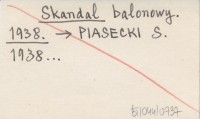 Skandal balonowy.
1938. → PIASECKI S.
1938...